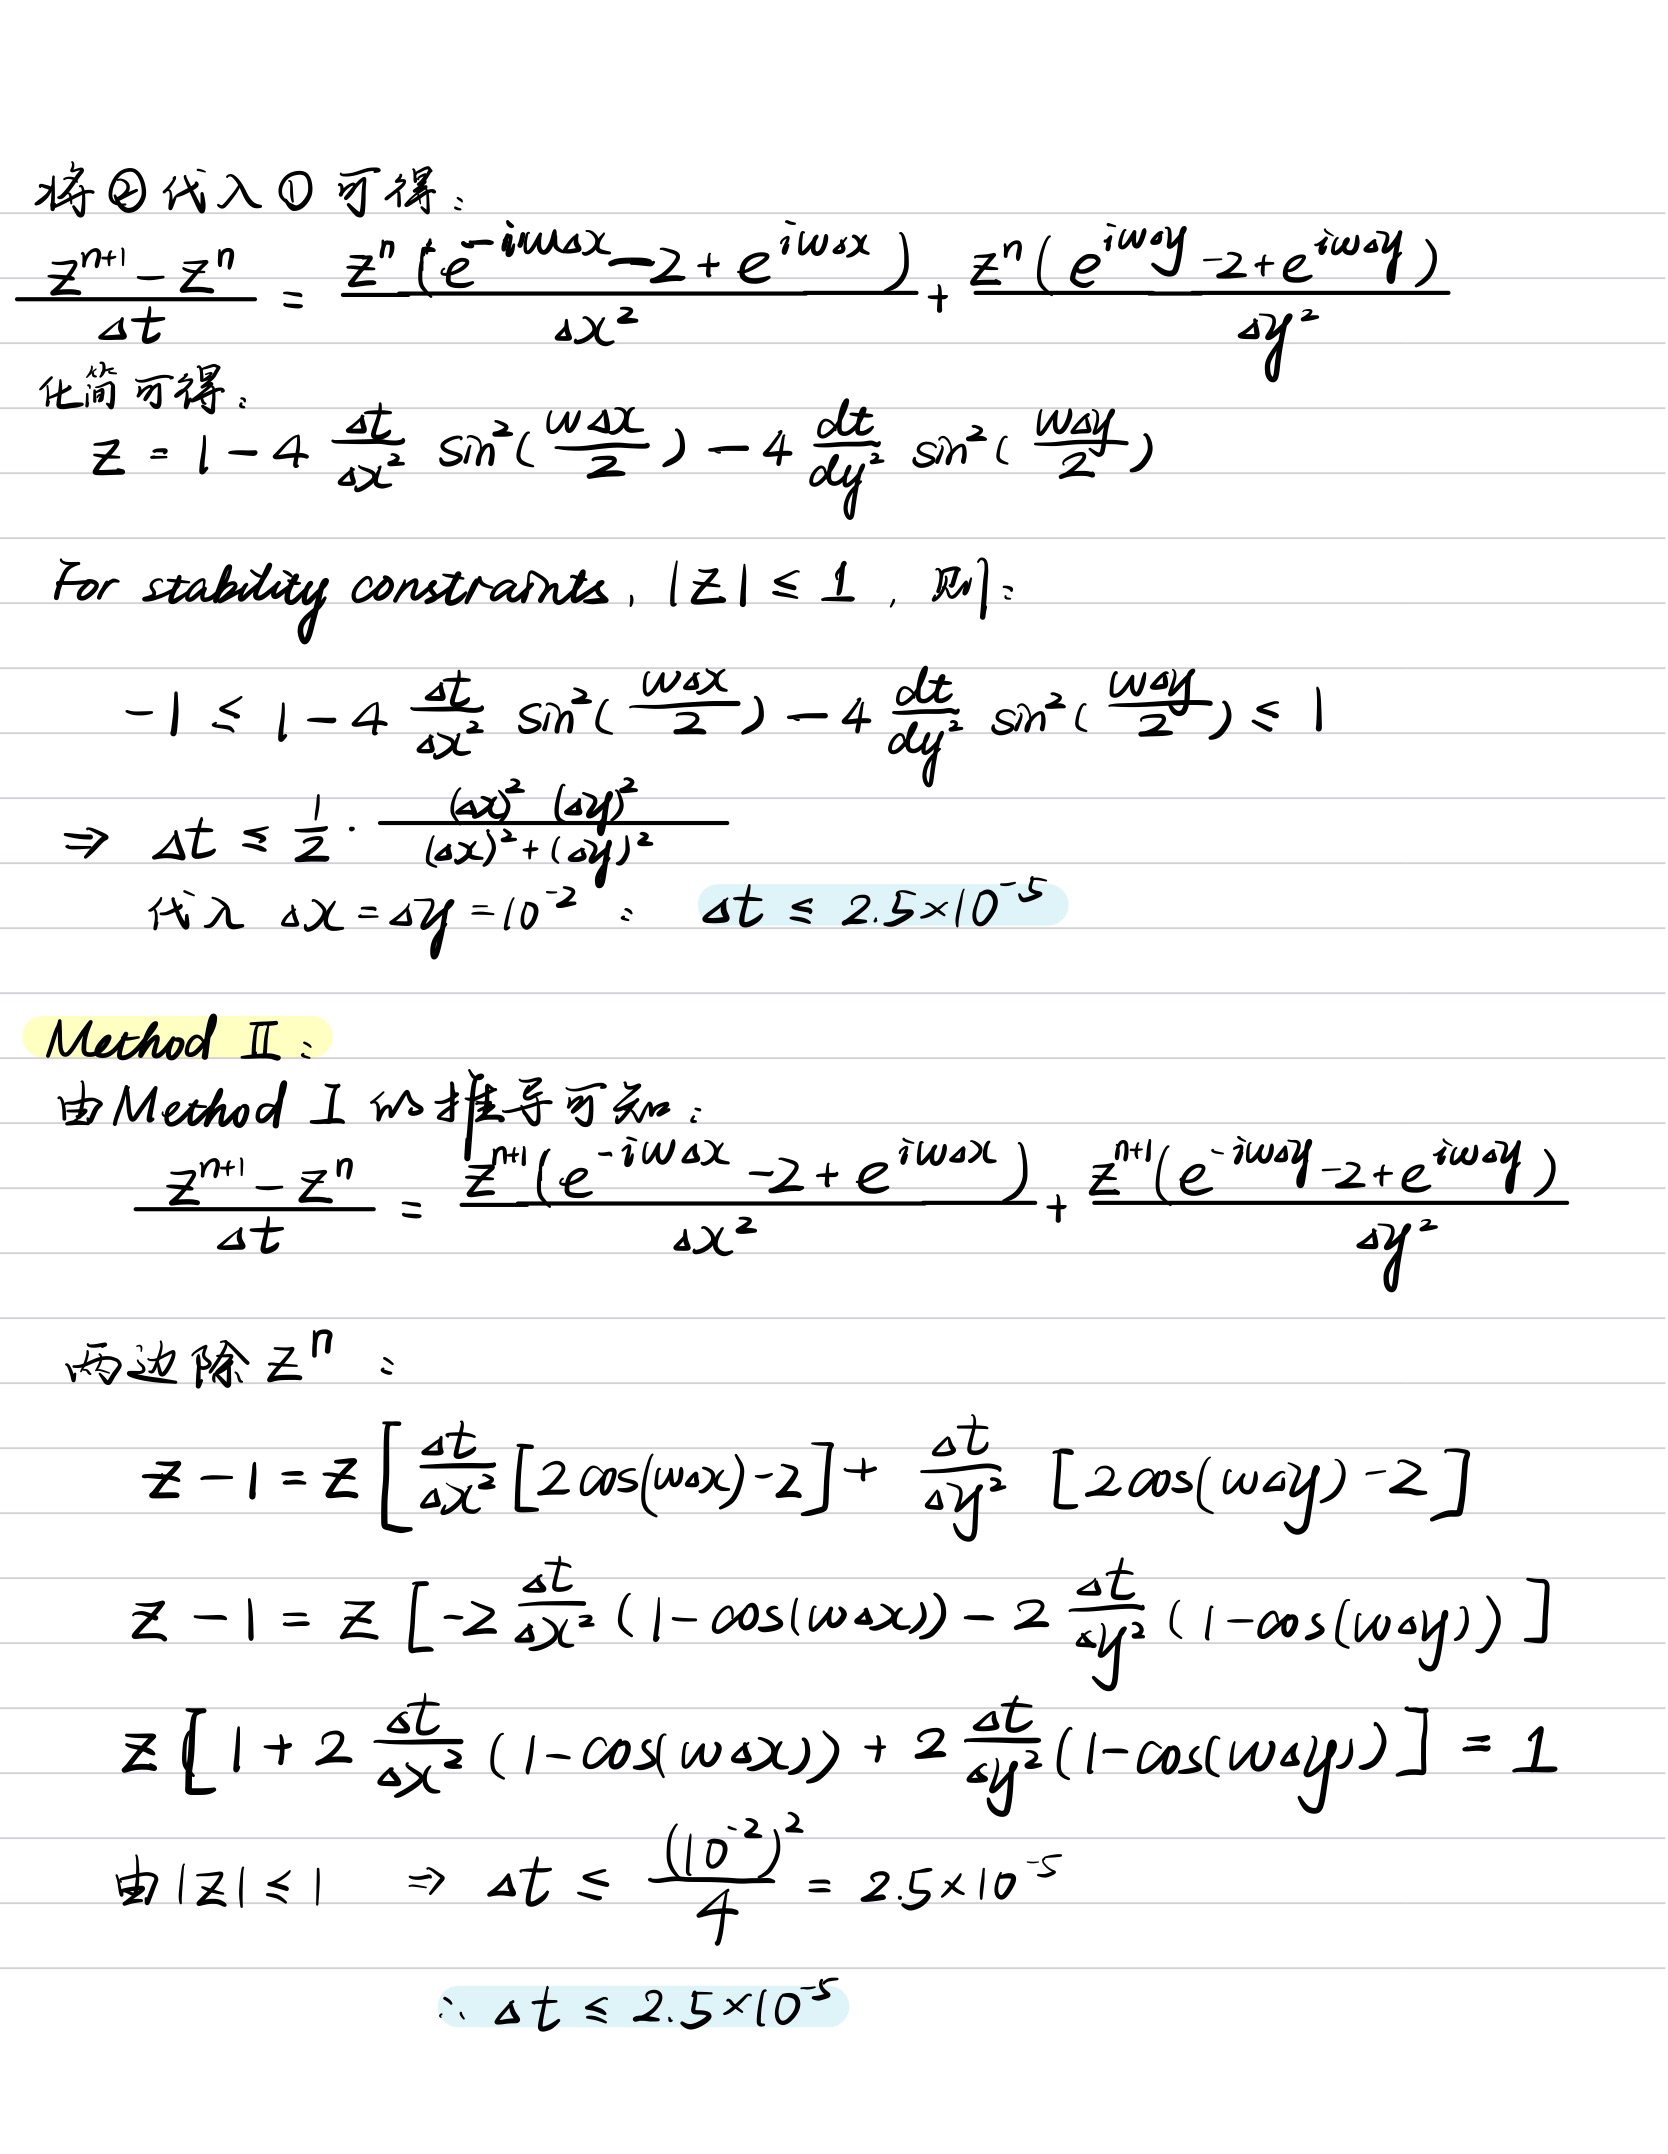 将②代入①可得：
(z^{n+1} - z^n)/Δt = z^n(e^{-iωΔx} - 2 + e^{iωΔx})/Δx² + z^n(e^{iωΔy} - 2 + e^{iωΔy})/Δy²
化简可得：
z = 1 - 4 Δt/Δx² sin²(ωΔx/2) - 4 dt/dy² sin²(ωΔy/2)
For stability constraints, |z| ≤ 1, 则：
-1 ≤ 1 - 4 Δt/Δx² sin²(ωΔx/2) - 4 dt/dy² sin²(ωΔy/2) ≤ 1
⇒ Δt ≤ 1/2 · (Δx)² (Δy)²/((Δx)² + (Δy)²)
代入 Δx = Δy = 10^{-2}： Δt ≤ 2.5×10^{-5}
Method II：
由Method I 的推导可知：
(z^{n+1} - z^n)/Δt = z^{n+1}(e^{-iωΔx} - 2 + e^{iωΔx})/Δx² + z^{n+1}(e^{-iωΔy} - 2 + e^{iωΔy})/Δy²
两边除 z^n：
z - 1 = z [Δt/Δx² [2cos(ωΔx) - 2] + Δt/Δy² [2cos(ωΔy) - 2]
z - 1 = z [-2 Δt/Δx² (1 - cos(ωΔx)) - 2 Δt/Δy² (1 - cos(ωΔy))]
z [1 + 2 Δt/Δx² (1 - cos(ωΔx)) + 2 Δt/Δy² (1 - cos(ωΔy))] = 1
由 |z| ≤ 1 ⇒ Δt ≤ (10^{-2})²/4 = 2.5×10^{-5}
∴ Δt ≤ 2.5×10^{-5}